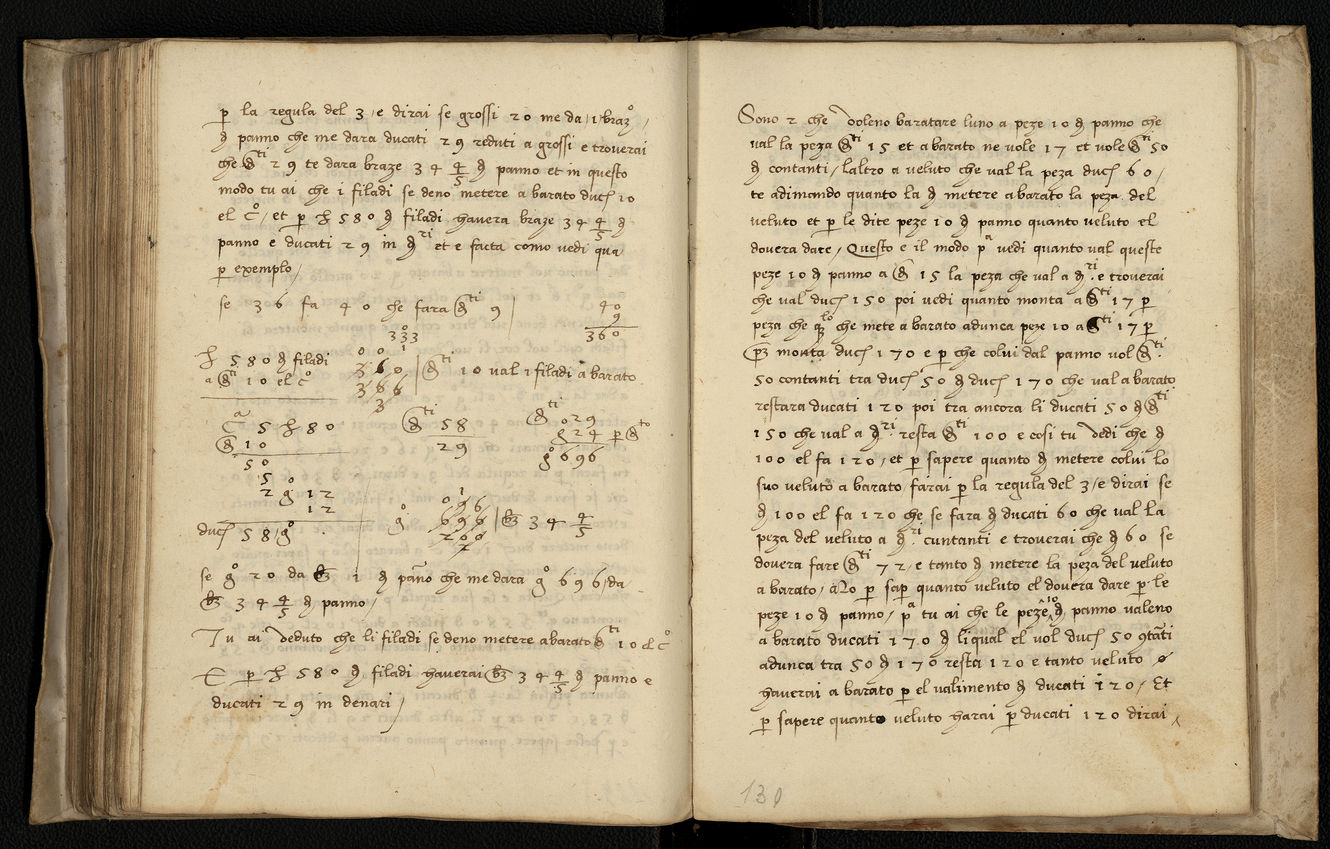 p la regula del 3 / e dirai se grossi 20 me da / 1 / braz° /
d panno che me dara ducati 29 reduti a grossi e troverai
che dti 29 te dara braze 34 4/5 d panno et in questo
modo tu ai che i filadi se deno metere a barato duc 10
el c° / et p L 580 d filadi havera braze 34 4/5 d
panno e ducati 29 in dri et e facta como vedi qua
p exemplo /
se 36 fa 40 che fara dti 9 |
40
9
360
L 580 d filadi
a dti 10 el c°
333
360
366
3
| dti 10 val i filadi a barato
c 5 L 80
d 10
50
5
2 g° 12
12
duc 58 / g°
dti 58
29
dti 029
24 p dto
g° 696
g°
696
200
| bz 34 4/5
se g° 20 da bz 1 d pano che me dara g° 696 / da
bz 34 4/5 d panno /
Tu ai veduto che li filadi se deno metere a barato dti 10 el c°
E p L 580 d filadi haverai bz 34 4/5 d panno e
ducati 29 in denari /
Sono 2 che voleno baratare luno a peze 10 d panno che
val la peza dti 15 et a barato ne vole 17 et vole dti 50
d contanti / laltro a veluto che val la peza duc 60 /
te adimando quanto la d metere a barato la peza del
veluto et p le dite peze 10 d panno quanto veluto el
dovera dare / Questo e il modo pa vedi quanto val queste
peze 10 d panno a d 15 la peza che val a dri e troverai
che val duc 150 poi vedi quanto monta a dti 17 p
peza che qlo che mete a barato adunca peze 10 a dti 17 p
pz monta duc 170 e p che colui dal panno vol dti
50 contanti tra duc 50 d duc 170 che val a barato
restara ducati 120 poi tra ancora li ducati 50 d dti
150 che val a dri resta dti 100 e cosi tu vedi che d
100 el fa 120 / et p sapere quanto d metere colui lo
suo veluto a barato farai p la regula del 3 / e dirai se
d 100 el fa 120 che se fara d ducati 60 che val la
peza del veluto a dri cuntanti e troverai che d 60 se
dovera fare dti 72 / e tanto d metere la peza del veluto
a barato / Mo p sap quanto veluto el dovera dare p le
peze 10 d panno / pa tu ai che le peze 10 d panno valeno
a barato ducati 170 d li qual el vol duc 50 9tati
adunca tra 50 d 170 resta 120 e tanto veluto
haverai a barato p el valimento d ducati 120 / Et
p sapere quanto veluto harai p ducati 120 dirai
130